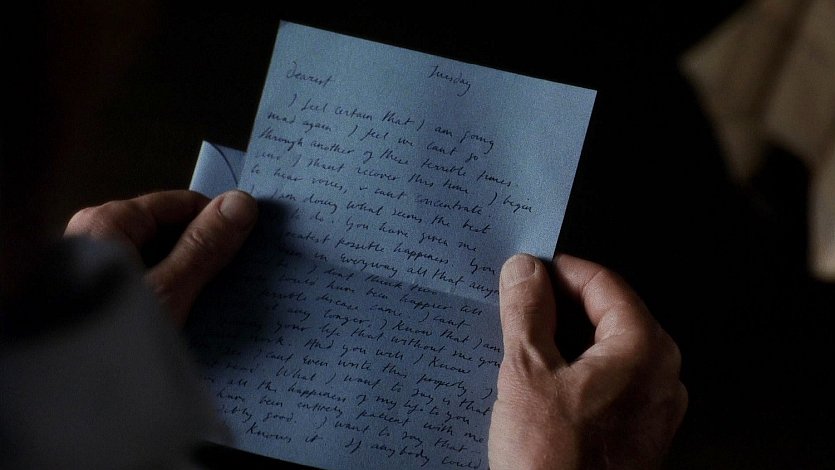 Tuesday
Dearest
I feel certain that I am going
mad again. I feel we can't go
through another of these terrible times.
And I shant recover this time. I begin
to hear voices, & cant concentrate.
I am doing what seems the best
do. You have given me
greatest possible happiness. You
in everyway all that any
I don't think two
could have been happier till
terrible disease came. I cant
any longer. I know that I am
your life that without me you
work. And you will I know.
I cant even write this properly. I
What I want to say is that
all the happiness of my life to you
have been entirely patient with me
good. I want to say that
knows it. If anybody could